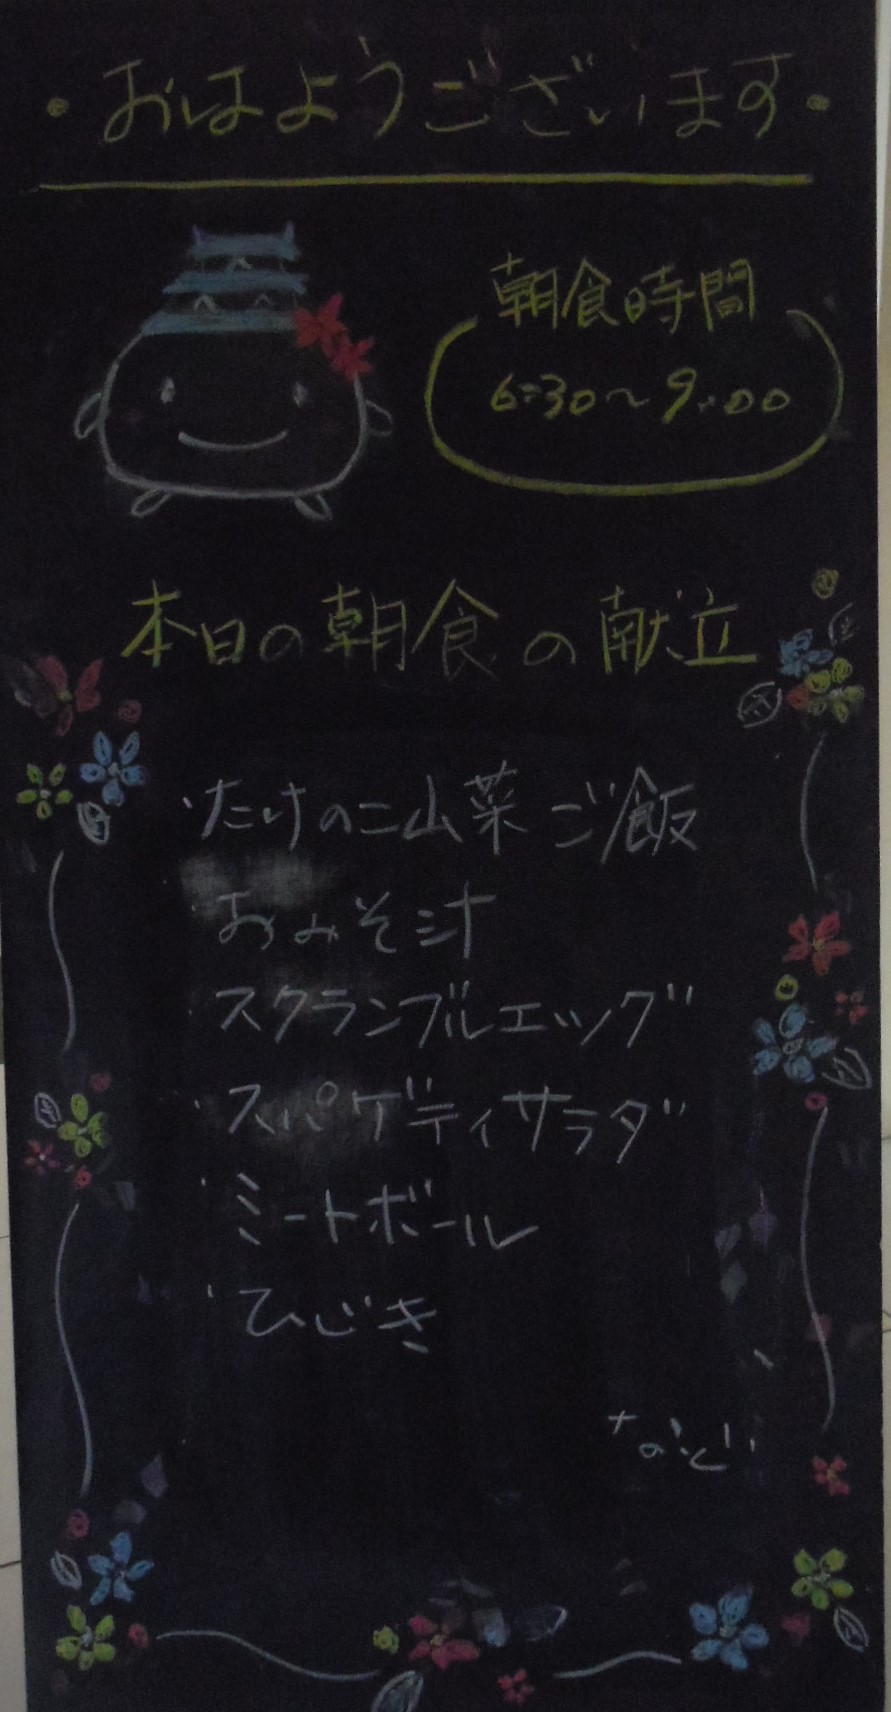 ・おはようございます・
朝食時間
6:30〜9:00
本日の朝食の献立
・たけのこ山菜ご飯
おみそ汁
・スクランブルエッグ
・スパゲティサラダ
・ミートボール
・ひじき
などなど